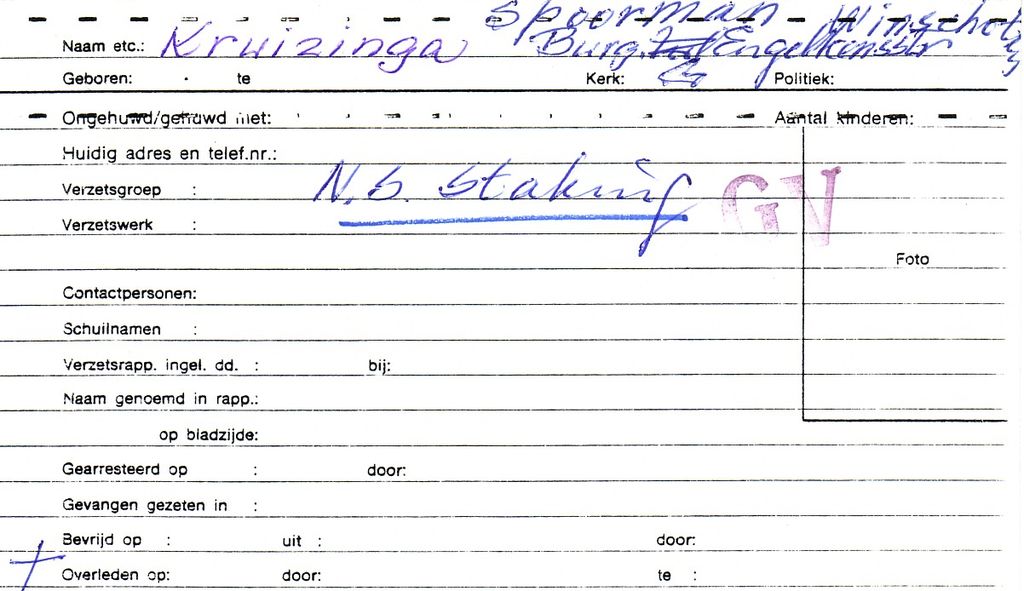 Spoorman Winschoten
Naam etc.: Kruizinga Burg. Engelkensstr
Geboren: . te Kerk: Politiek:
Ongehuwd/gehuwd met: Aantal kinderen:
Huidig adres en telef.nr.:
Verzetsgroep : N.S. Staking GV
Verzetswerk :
Foto
Contactpersonen:
Schuilnamen :
Verzetsrapp. ingel. dd. : bij:
Naam genoemd in rapp.:
op bladzijde:
Gearresteerd op : door:
Gevangen gezeten in :
Bevrijd op : uit : door:
Overleden op: door: te :